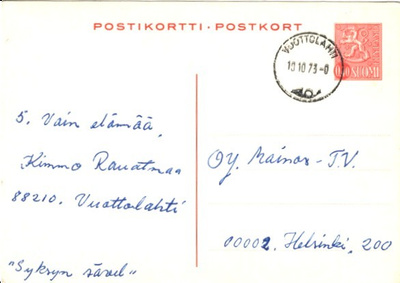 POSTIKORTTI · POSTKORT
VUOTTOLAHTI
10 10 73 -0
SUOMI
5. Vain elämää,
Kimmo Rautamaa
88210. Vuottolahti
"Syksyn sävel"
OY. Mainos-T.V.
00002. Helsinki, 200